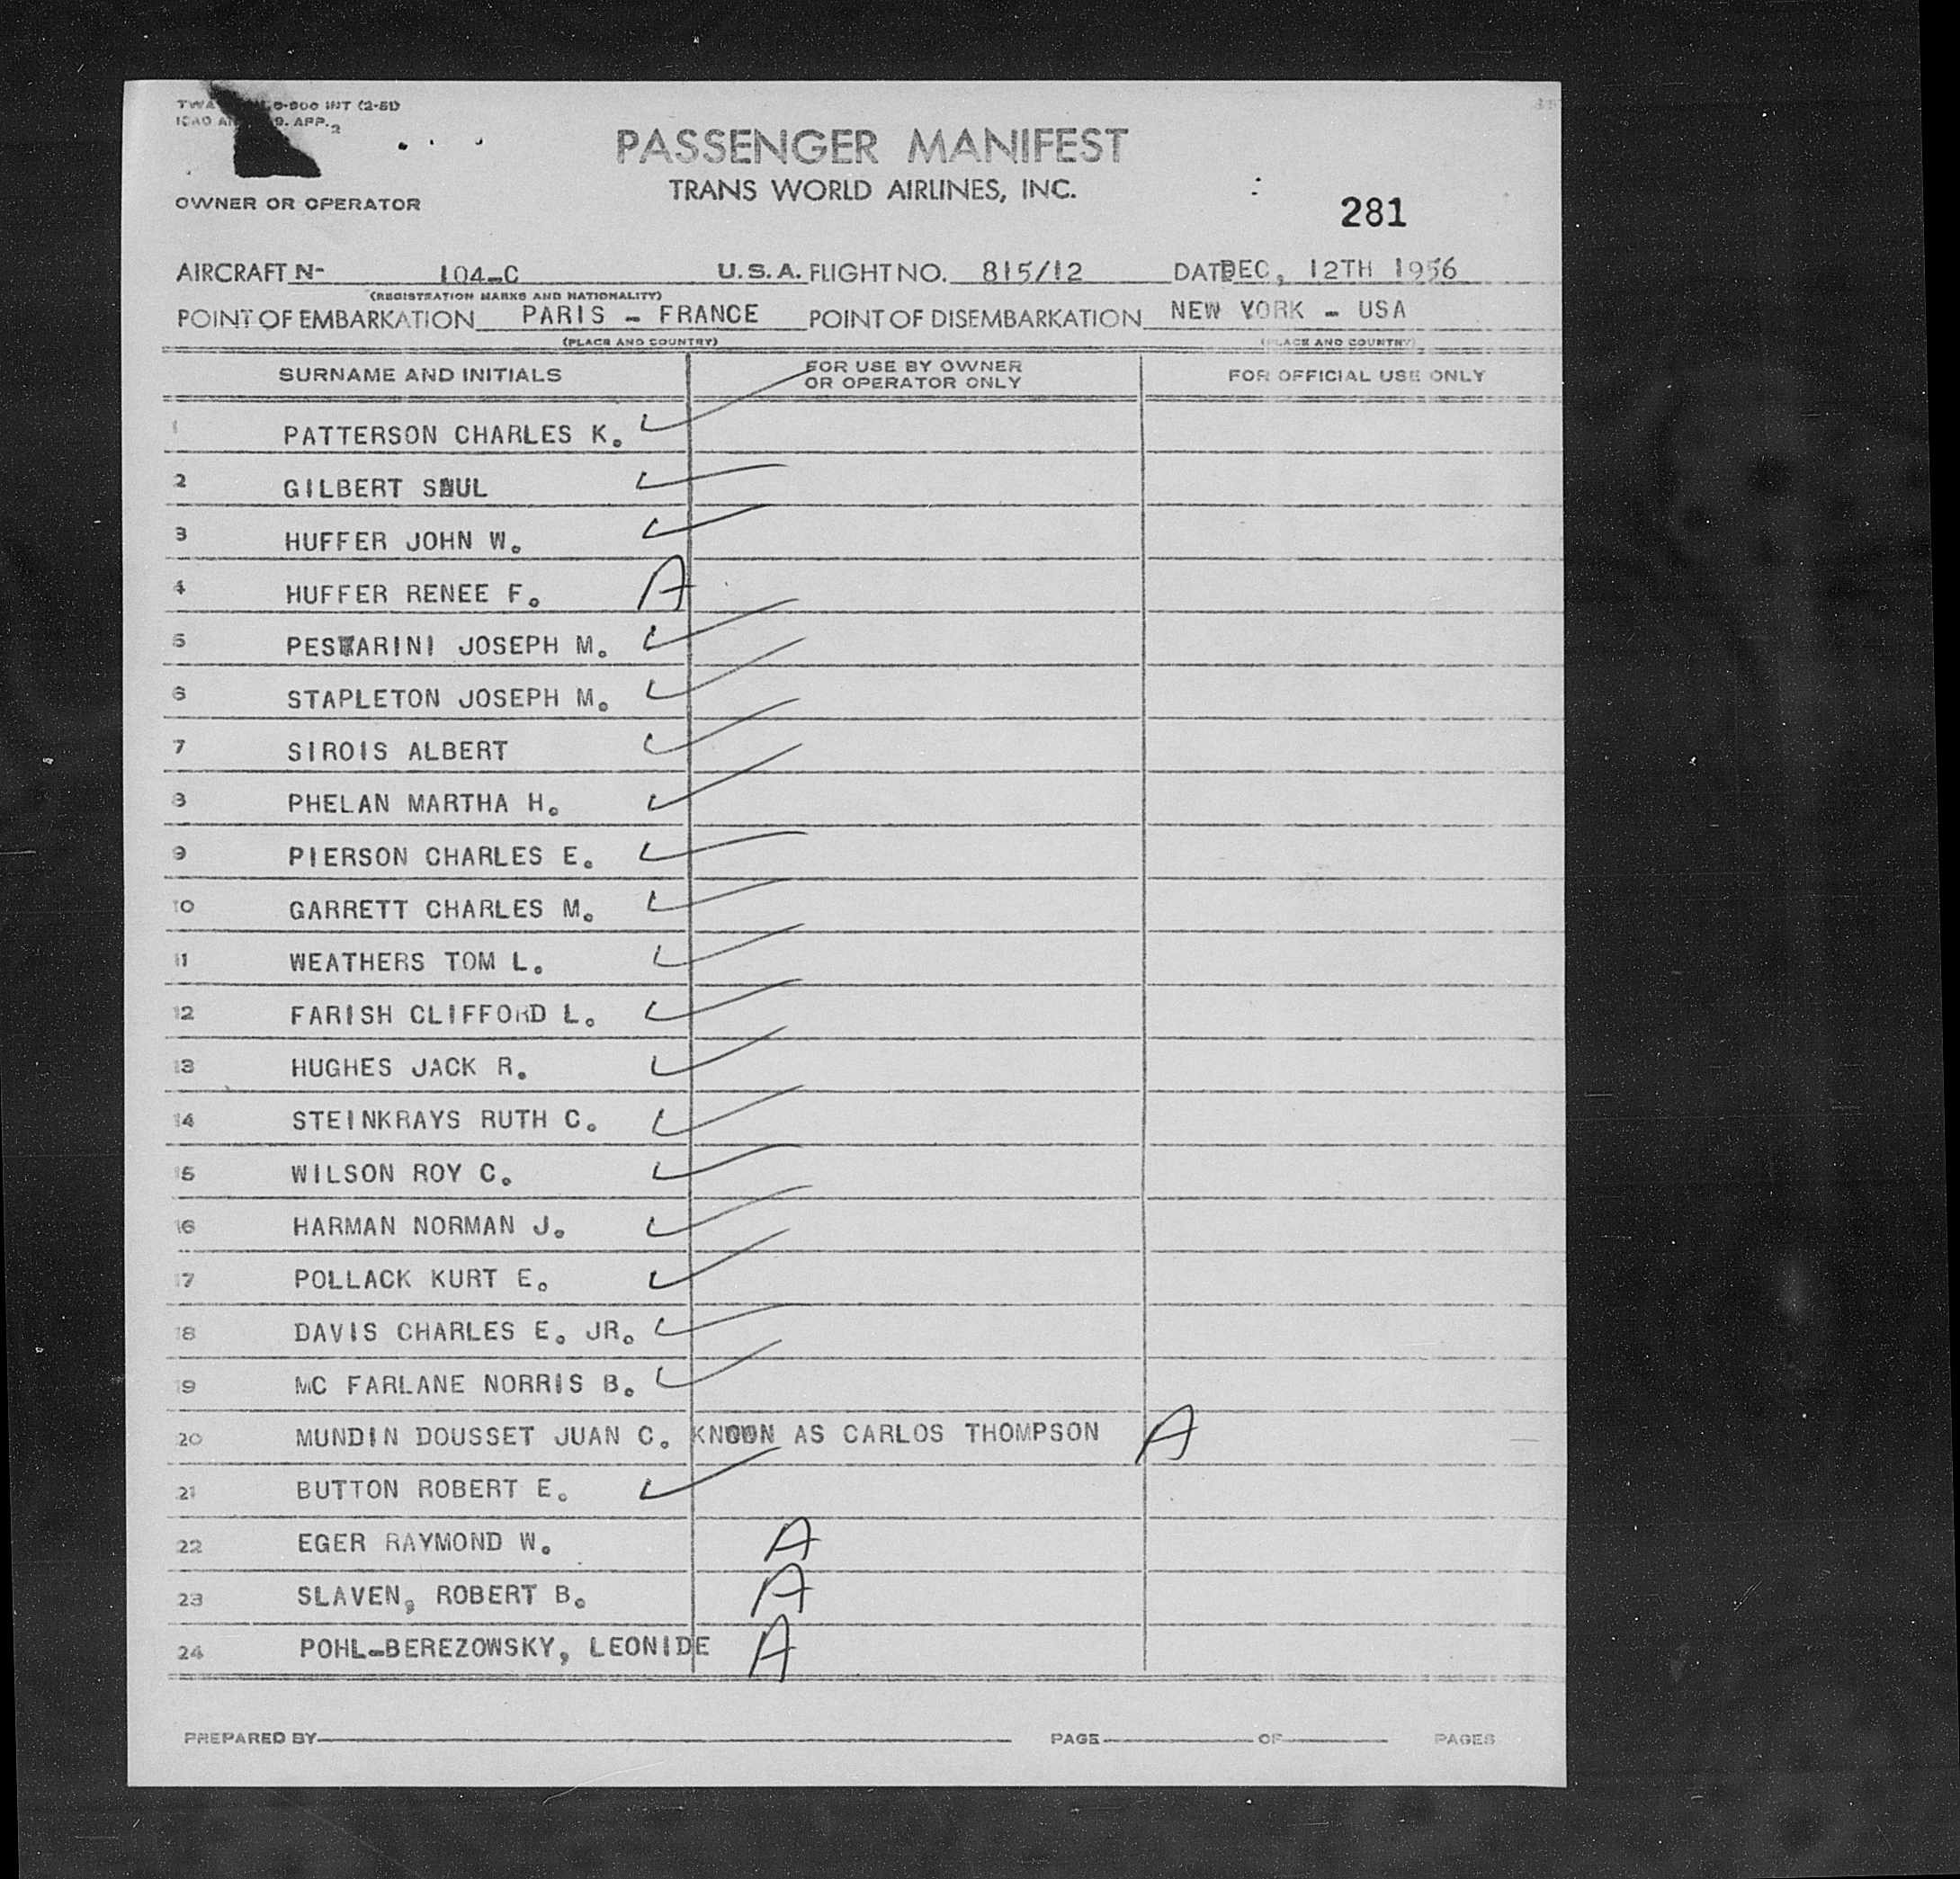 TWA 0-800 INT (2-51)
ICAO 9. APP. 2
PASSENGER MANIFEST
TRANS WORLD AIRLINES, INC.
OWNER OR OPERATOR
281
AIRCRAFT N- 104-C U.S.A. FLIGHT NO. 815/12 DATE DEC, 12TH 1956
(REGISTRATION MARKS AND NATIONALITY)
POINT OF EMBARKATION PARIS - FRANCE POINT OF DISEMBARKATION NEW YORK - USA
(PLACE AND COUNTRY) (PLACE AND COUNTRY)
SURNAME AND INITIALS FOR USE BY OWNER OR OPERATOR ONLY FOR OFFICIAL USE ONLY
1 PATTERSON CHARLES K.
2 GILBERT SAUL
3 HUFFER JOHN W.
4 HUFFER RENEE F. A
5 JOSEPH M.
6 STAPLETON JOSEPH M.
7 SIROIS ALBERT
8 PHELAN MARTHA H.
9 PIERSON CHARLES E.
10 GARRETT CHARLES M.
11 WEATHERS TOM L.
12 FARISH CLIFFORD L.
13 HUGHES JACK R.
14 STEINKRAYS RUTH C.
15 WILSON ROY C.
16 HARMAN NORMAN J.
17 POLLACK KURT E.
18 DAVIS CHARLES E. JR.
19 MC FARLANE NORRIS B.
20 MUNDIN DOUSSET JUAN C. KNOWN AS CARLOS THOMPSON A
21 BUTTON ROBERT E.
22 EGER RAYMOND W. A
23 SLAVEN, ROBERT B. A
24 POHL-BEREZOWSKY, LEONIDE A
PREPARED BY PAGE OF PAGES